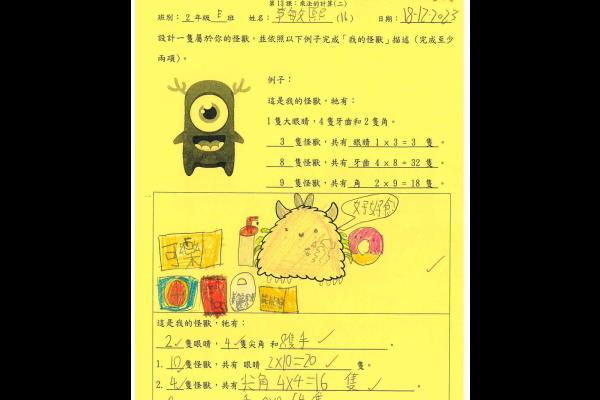 第13課：乘法的計算(二)
班別：2年級E班 姓名：(16) 日期：18-12-2023
設計一隻屬於你的怪獸，並依照以下例子完成「我的怪獸」描述 (完成至少
兩項)。
例子：
這是我的怪獸，牠有：
1隻大眼睛，4隻牙齒和2隻角。
3 隻怪獸，共有 眼睛 1 x 3 = 3 隻。
8 隻怪獸，共有 牙齒 4 x 8 = 32 隻。
9 隻怪獸，共有 角 2 x 9 = 18 隻。
好好食
可樂
這是我的怪獸，牠有：
2 隻眼睛，4 隻尖角 和 8隻手。
1. 10 隻怪獸，共有 眼睛 2X10=20 隻。
2. 4 隻怪獸，共有 尖角 4X4=16 隻。